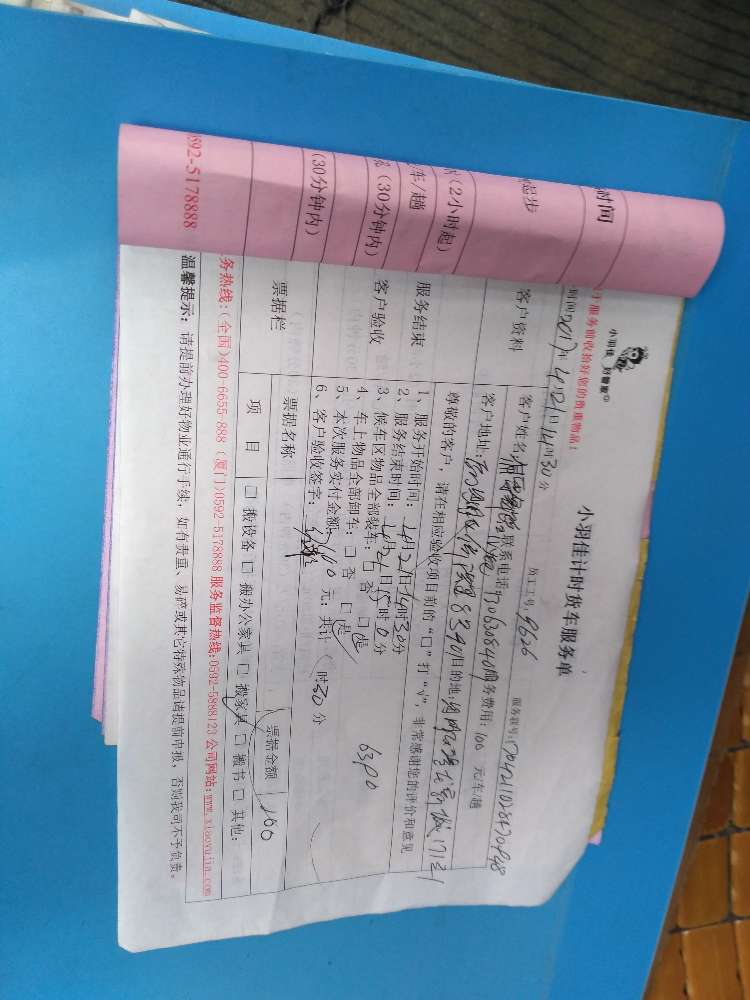 小羽佳 刘管家
小羽佳计时货车服务单
于服务前收拾好您的贵重物品!
员工工号: 9626
服务联号:
时间2017年4月21日14时30分
客户资料
客户姓名:
联系电话
服务费用: 100 元/车/趟
客户地址:
目的地:
尊敬的客户, 请在相应验收项目前的“口”打“√”, 非常感谢您的评价和意见
服务结束
客户验收
1、服务开始时间: 4月21日14时30分
2、服务结束时间: 4月21日15时0分
3、候车区物品全部装车: □否 □是
4、车上物品全部卸车: □否 □是
5、本次服务实付金额: 元; 共计( )时30分
6、客户验收签字:
票据栏
票据名称
票据金额
100
项 目
□搬设备 □搬办公家具 □搬家具 □搬书 □其他:
务热线: (全国)400-6655-888 (厦门)0592-5178888 服务监督热线:0592-5888123 公司网站:www.xiaoyujia.com
温馨提示: 请提前办理好物业通行手续, 如有贵重、易碎或其它特殊物品请提前申报, 否则我司不予负责。
时间
起步
(2小时起)
车/趟
(30分钟内)
(30分钟内)
0592-5178888